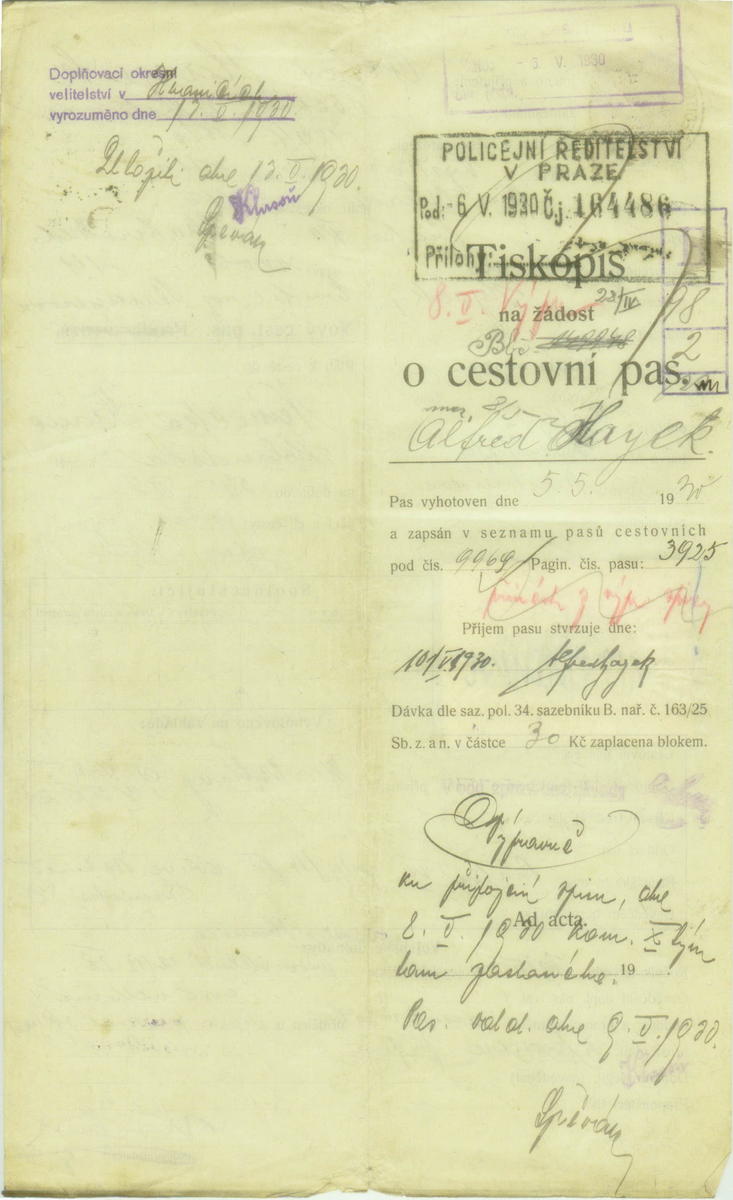 Doplňovací okresní
velitelství v Hranicích
vyrozuměno dne 13. V. 1930
Uložiti dne 13. V. 1930.
6 V. 1930
POLICEJNÍ ŘEDITELSTVÍ
V PRAZE
Pod: -6 V. 1930 Čj. 164486
Přílohy:
Tiskopis
8. V. 28/IV 98
na žádost
2
o cestovní pas.
Alfred Hayek.
Pas vyhotoven dne 5. 5. 1930
a zapsán v seznamu pasů cestovních
pod čís. 9969 Pagin. čís. pasu: 3925
Příjem pasu stvrzuje dne:
10/V 1930. Alfred Hayek
Dávka dle saz. pol. 34. sazebníku B. nař. č. 163/25
Sb. z. a n. v částce 30 Kč zaplacena blokem.
Výpravně
ku připojení spisu, dne
Ad acta.
8. V. 1930 kom. X.
tam zaslaného. 19
Pas dne 9. V. 1930.